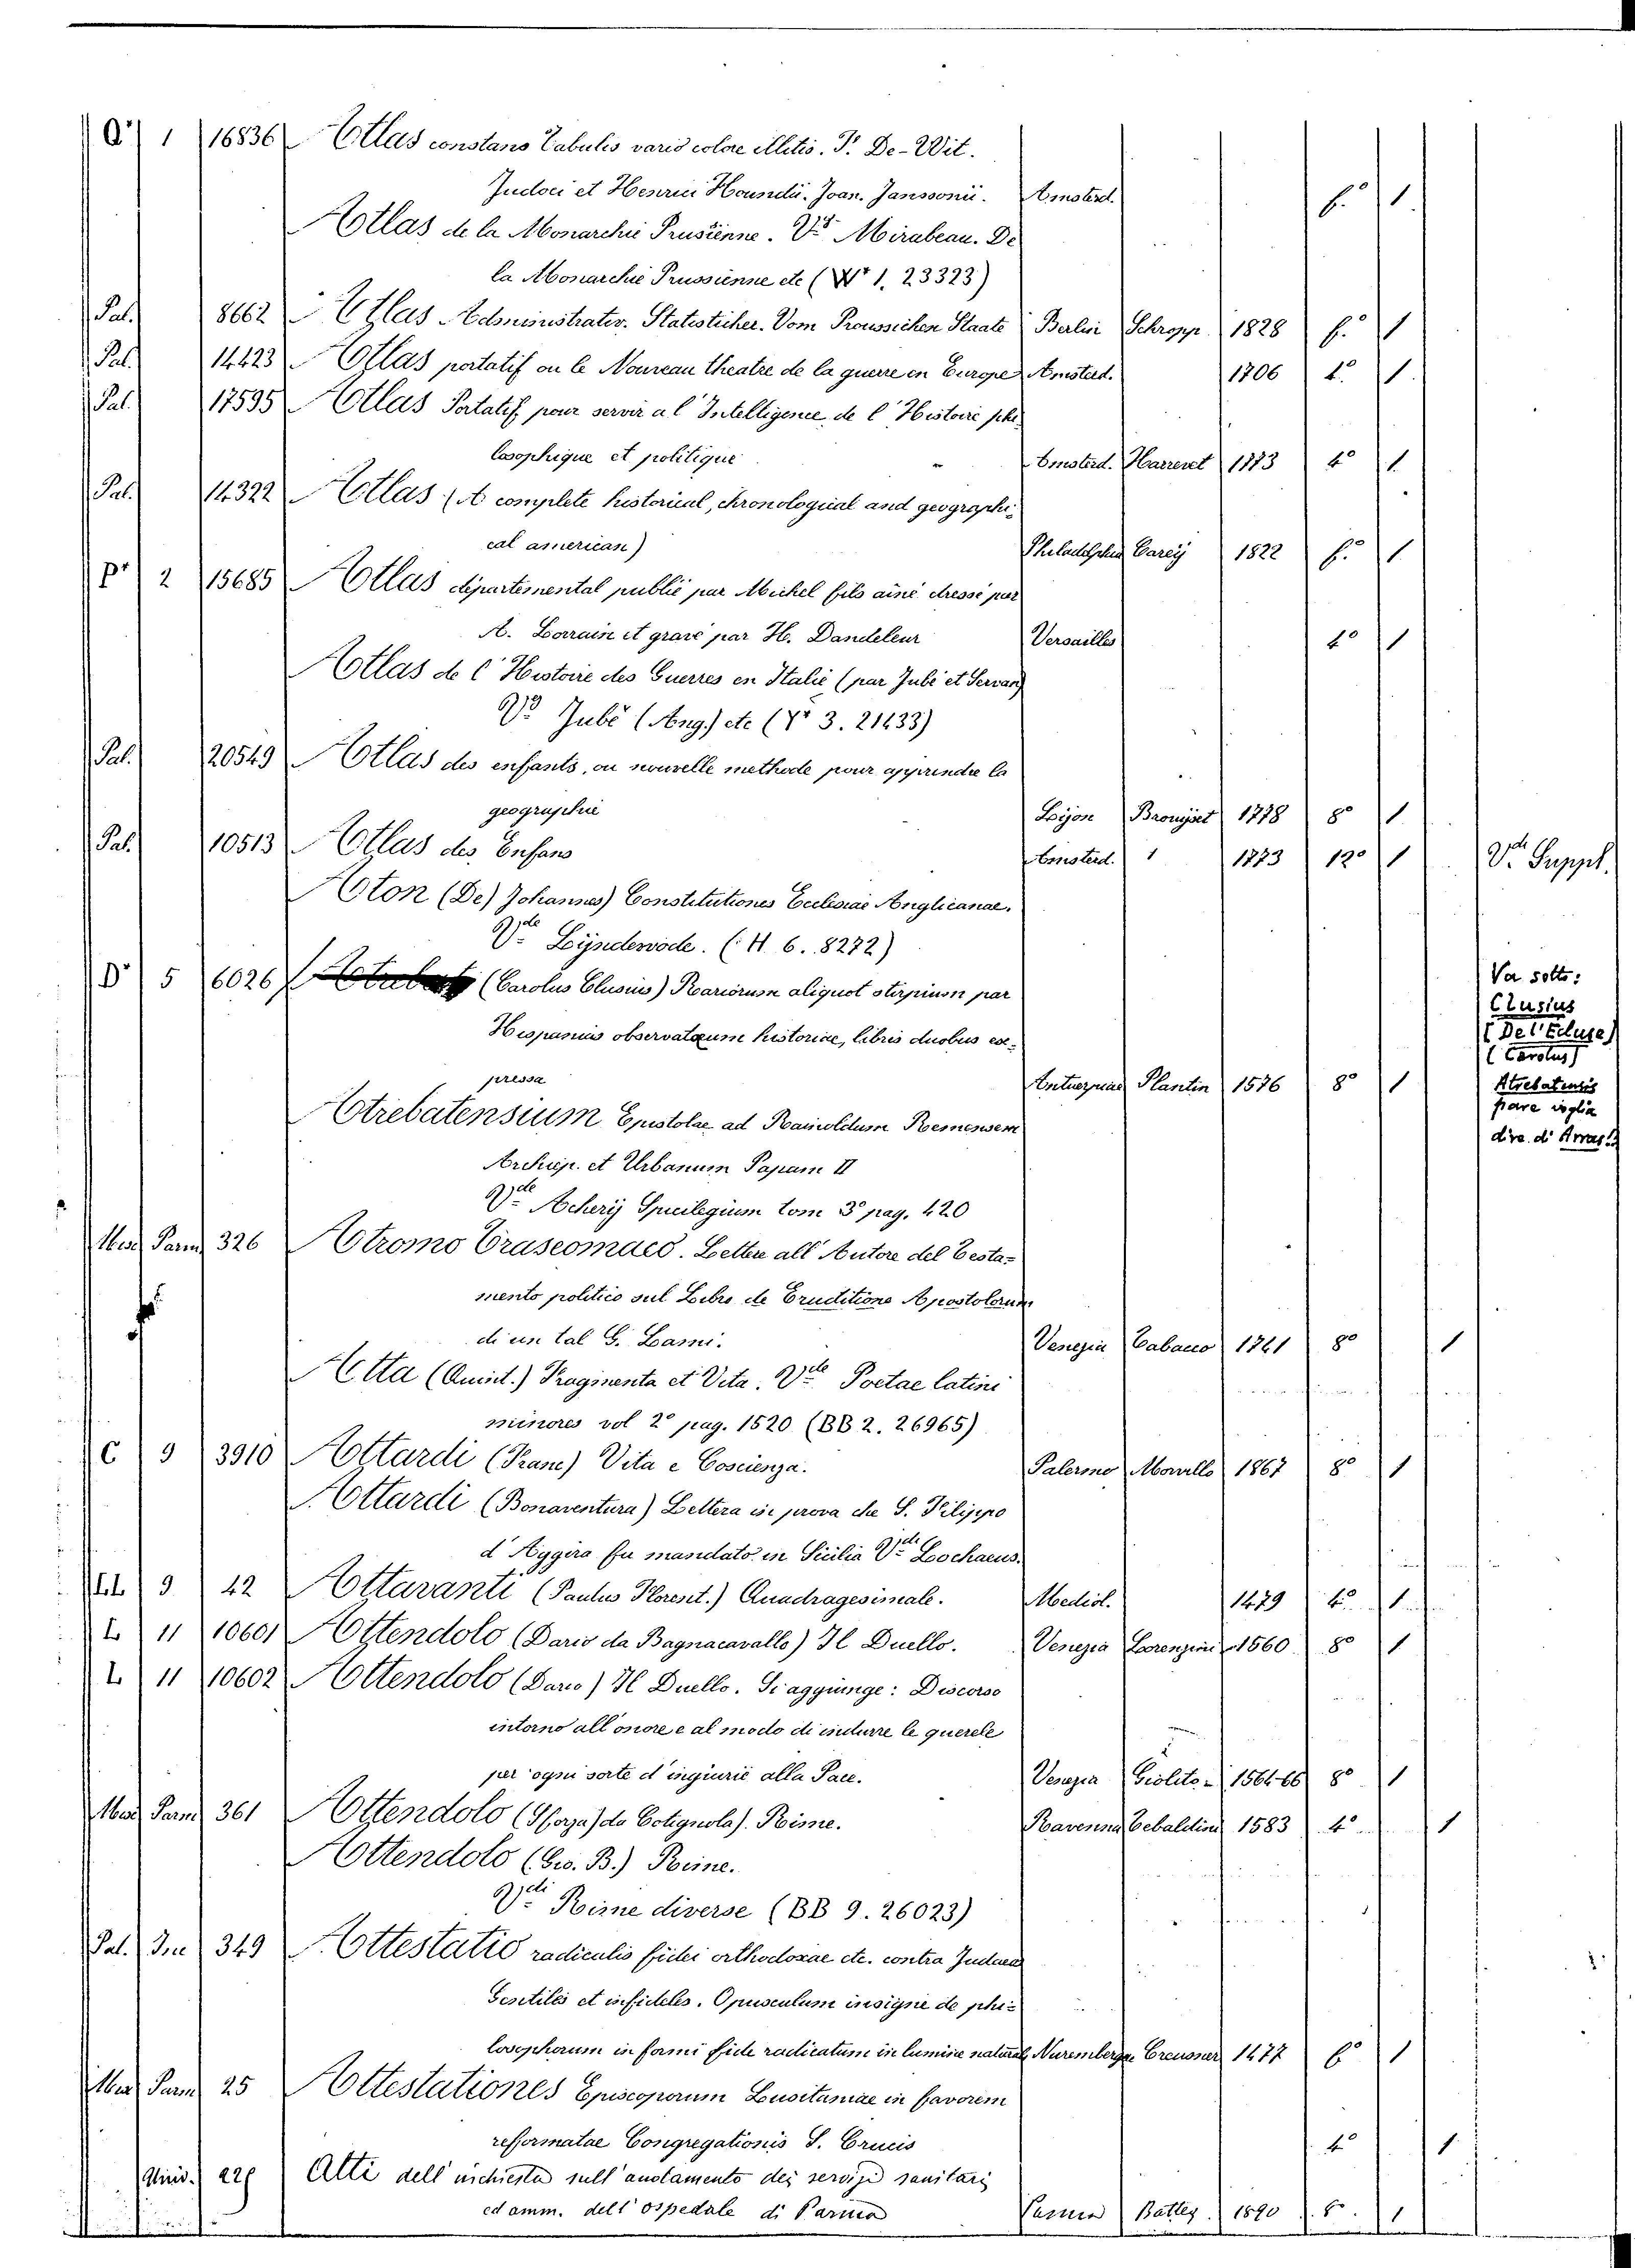 Q' 1 16836 Atlas constans Tabulis vario colore illitis. F. De-Wit.
Judoci et Henrici Houndii. Joan. Janssonii. Amsterd. f.° 1
Atlas de la Monarchie Prusienne. V.di Mirabeau. De
la Monarchie Prussienne etc (W* 1. 23323)
Pal. 8662 Atlas Administrativ. Statisticher. Vom Preussichen Staate Berlin Schropp 1828 f.° 1
Pal. 14423 Atlas portatif ou le Nouveau theatre de la guerre en Europe Amsterd. 1706 4.° 1
Pal. 17595 Atlas Portatif pour servir a l'Intelligence de l'Histoire phi
losophique et politique Amsterd. Harrevet 1773 4° 1
Pal. 14322 Atlas (A complete historical, chronological and geographi
cal american) Philadelphia Carey 1822 f.° 1
P' 2 15685 Atlas départemental publié par Michel fils ainé dressé par
A. Lorrain et gravé par H. Dandeleur Versailles 4° 1
Atlas de l'Histoire des Guerres en Italie (par Jubé et Servan)
V.di Jubé (Aug.) etc (V* 3. 21433)
Pal. 20549 Atlas des enfants, ou nouvelle methode pour apprendre la
geographie Lijon Bruyset 1778 8° 1
Pal. 10513 Atlas des Enfans Amsterd. 1 1773 12° 1 V.di Suppl.
Aton (De) Johannes) Constitutiones Ecclesiae Anglicanae.
V.de Lijndewode. (H. 6. 8272)
D' 5 6026 (Carolus Clusius) Rariorum aliquot stirpium par
Hispanias observatarum historiae, libris duobus ex-
pressa Antuerpiae Plantin 1576 8° 1
Va sotto:
Clusius
(De l'Ecluse)
(Carolus)
Atrebatensis
pare voglia
dire di Arras!
Atrebatensium Epistolae ad Rainoldum Remensem
Archiep. et Urbanum Papam II
V.de Acherij Spicilegium tom 3° pag. 420
Misc. Parm. 326 Atromo Traseomaco. Lettera all'Autore del Testa=
mento politico sul Libro de Eruditione Apostolorum
di un tal G. Lami. Venezia 1761 8° 1
Atta (Quint.) Fragmenta et Vita. V.de Poetae latini
minores vol 2° pag. 1520 (BB 2. 26965)
C 9 3910 Attardi (Franc) Vita e Coscienza. Palermo Morvillo 1867 8° 1
Attardi (Bonaventura) Lettera in prova che S. Filippo
d'Aggira fu mandato in Sicilia V.di Lochaeus.
9 42 Attavanti (Paulus Florent.) Quadragesimale. Mediol. 1479 4° 1
L 11 10601 Attendolo (Dario da Bagnacavallo) Il Duello. Venezia Lorenzini 1560 8° 1
L 11 10602 Attendolo (Dario) Il Duello. Si aggiunge: Discorso
intorno all'onore e al modo di indurre le querele
per ogni sorte d'ingiurie alla Pace. Venezia Giolito 1564-66 8° 1
Misc. Parm. 361 Attendolo (Sforza) da Cotignola). Rime. Ravenna Tebaldini 1583 4° 1
Attendolo (Gio. B.) Rime.
V.di Rime diverse (BB 9. 26023)
Pal. Inc 349 Attestatio radicalis fidei orthodoxae etc. contra Judaeos
Gentiles et infideles. Opusculum insigne de phi=
losophorum in fami fide radicatum in lumine natural Nurembergae Creusner 1477 f.° 1
Misc. Parm. 25 Attestationes Episcoporum Lusitaniae in favorem
reformatae Congregationis S. Crucis 4° 1
Univ. Atti dell'inchiesta sull'andamento dei servizi sanitari
ed amm. dell'ospedale di Parma Parma Battei. 1890 8°. 1